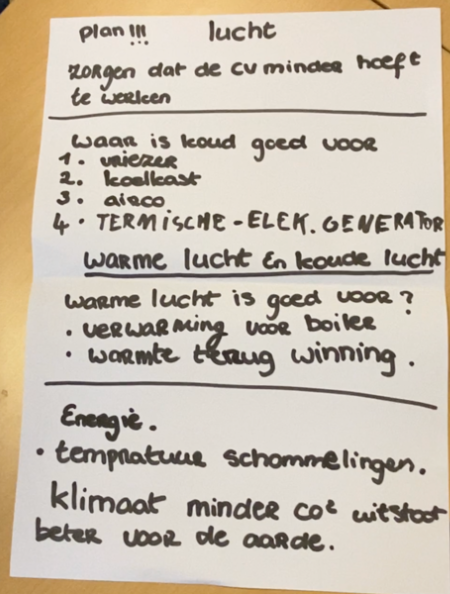 plan!!! lucht
zorgen dat de cv minder hoeft
te werken
waar is koud goed voor
1. vriezer
2. koelkast
3. airco
4. TERMISCHE-ELEK. GENERATOR
warme lucht En koude lucht
warme lucht is goed voor?
. verwarming voor boiler
. warmte terug winning.
Energie.
. tempratuur schommelingen.
klimaat minder co² uitstoot
beter voor de aarde.